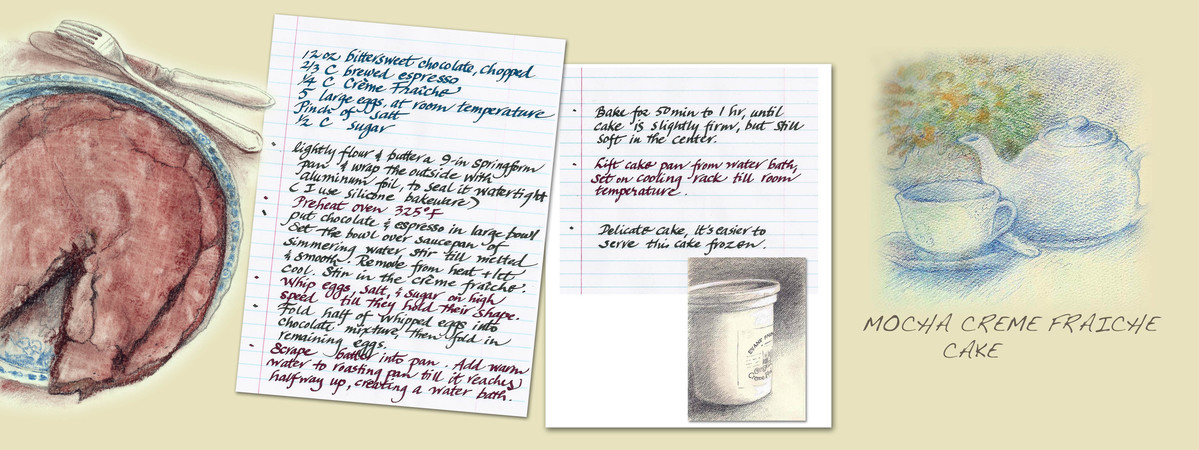 12 oz bittersweet chocolate, chopped
2/3 C brewed espresso
1/4 C Crème Fraîche
5 large eggs, at room temperature
Pinch of salt
1/2 C sugar
• lightly flour & butter a 9-in springform
pan & wrap the outside with
aluminum foil, to seal it watertight
( I use silicone bakeware)
• Preheat oven 325°F
• put chocolate & espresso in large bowl
Set the bowl over saucepan of
simmering water, stir till melted
& smooth. Remove from heat + let
cool. Stir in the crème fraîche.
• Whip eggs, salt, & sugar on high
speed till they hold their shape.
• Fold half of whipped eggs into
chocolate mixture, then fold in
remaining eggs.
• Scrape batter into pan. Add warm
water to roasting pan till it reaches
halfway up, creating a water bath.
• Bake for 50 min to 1 hr, until
cake is slightly firm, but still
soft in the center.
• Lift cake pan from water bath,
set on cooling rack till room
temperature.
• Delicate cake, it's easier to
serve this cake frozen.
MOCHA CREME FRAICHE
CAKE